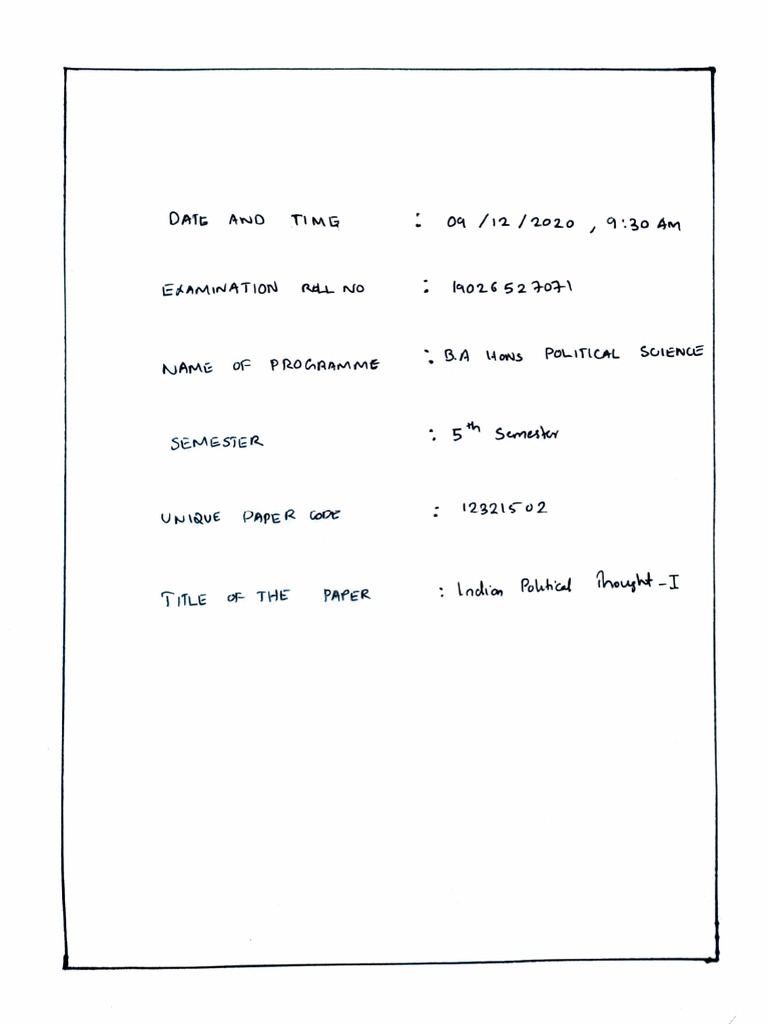 DATE AND TIME : 09/12/2020, 9:30 AM
EXAMINATION ROLL NO : 19026527071
NAME OF PROGRAMME : B.A HONS POLITICAL SCIENCE
SEMESTER : 5th Semester
UNIQUE PAPER CODE : 12321502
TITLE OF THE PAPER : Indian Political Thought-I